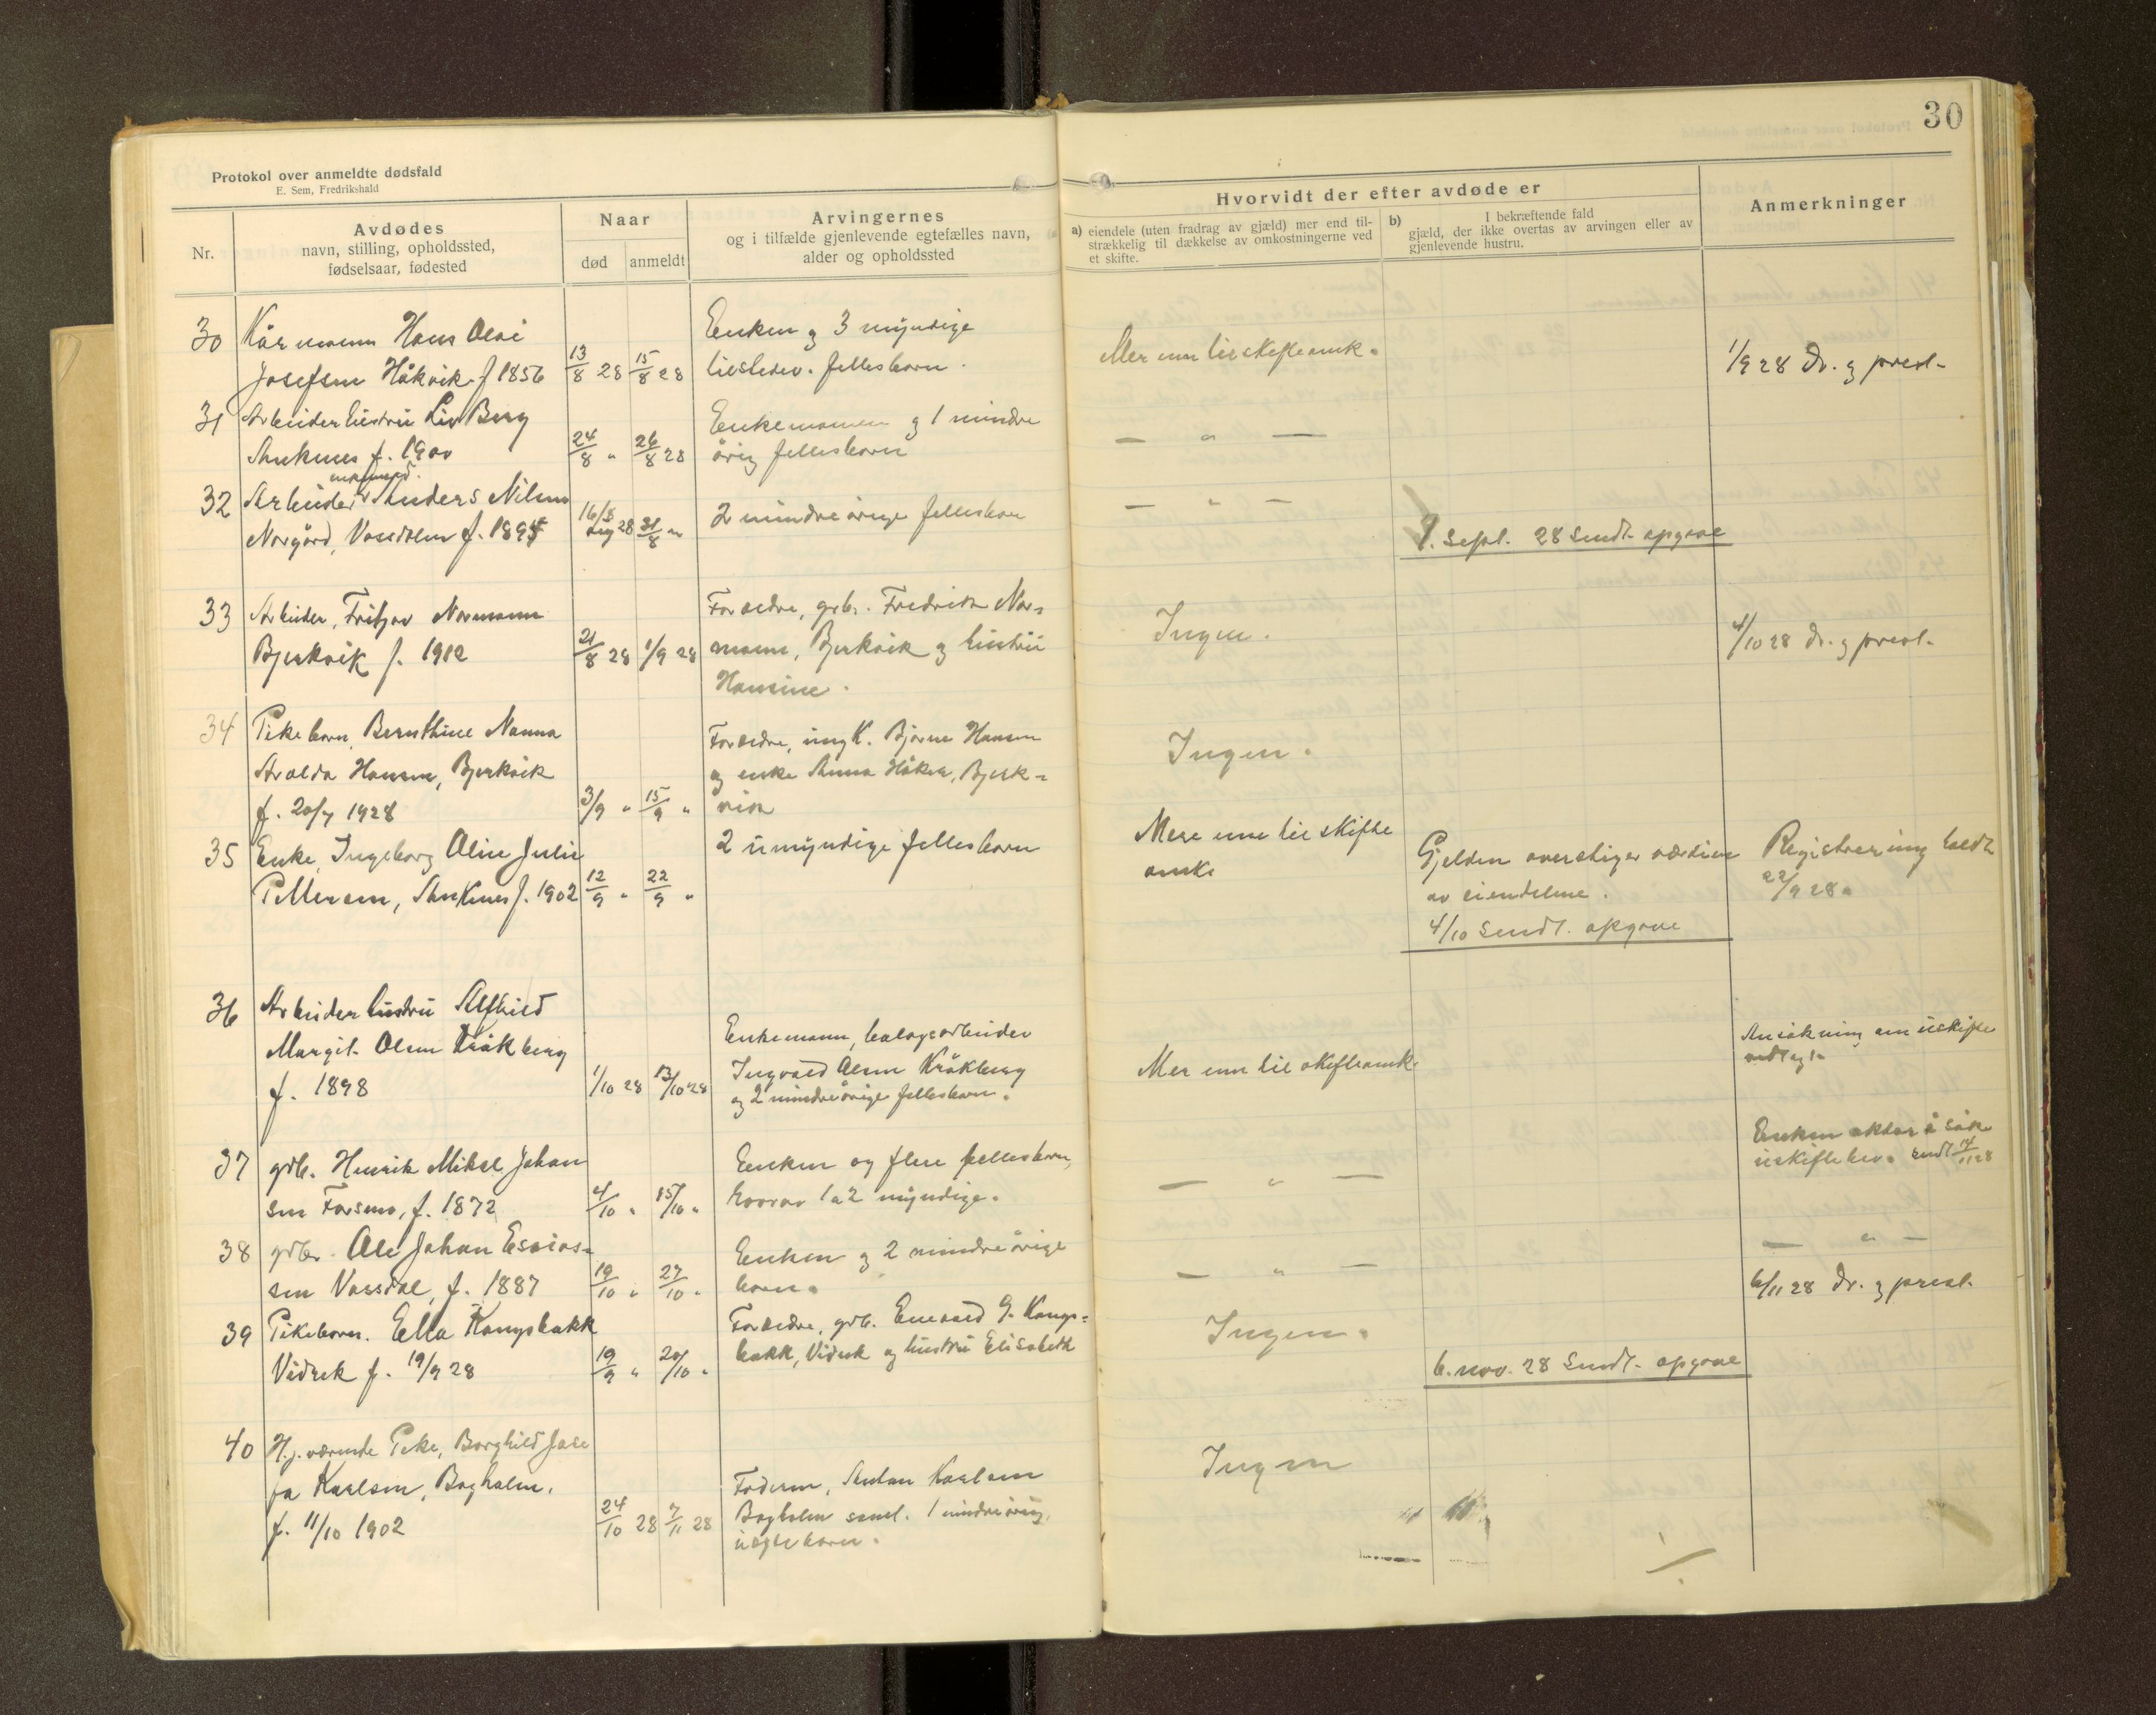 30
Protokol over anmeldte dødsfald
E. Sem, Fredrikshald
Nr.
Avdødes
navn, stilling, opholdssted,
fødselsaar, fødested
Naar
død
anmeldt
Arvingernes
og i tilfælde gjenlevende egtefælles navn,
alder og opholdssted
Hvorvidt der efter avdøde er
a) eiendele (uten fradrag av gjæld) mer end til-
strækkelig til dækkelse av omkostningerne ved
et skifte.
b) I bekræftende fald
gjæld, der ikke overtas av arvingen eller av
gjenlevende hustru.
Anmerkninger
30 Kårmann Hans Olai
Josefsen Håkvik f 1856
13/8 28 15/8 28
Enken og 3 myndige
fellesbarn.
Mer enn til skifteomk.
1/9 28 dr. og prest.
31 Arbeiderhustru Liv Berg
Ankenes f. 1900
24/8 " 26/8 28
Enkemannen og 1 mindre
årig fellesbarn
— " —
32 Arbeider Anders Nilsen
Norgård, Vassdalen f. 1894
16/8 28 31/8 "
2 mindreårige fellesbarn
— " —
9. sept. 28 Sendt opgave
33 Arbeider, Fritjov Normann
Bjerkvik f. 1912
21/8 28 1/9 28
Foreldre, grbr. Fredrik Nor-
mann, Bjerkvik og hustru
Hansine.
Ingen.
4/10 28 dr. og prest.
34 Pikebarn, Bernthine Nanna
Aralda Hansen, Bjerkvik
f. 20/7 1928
3/9 " 15/9 "
Foreldre, ungk. Bjarne Hansen
og enke Anna Håker, Bjerk-
vik
Ingen.
35 Enke, Ingeborg Oline Julie
Pettersen, Ankenes f. 1902
12/9 " 22/9 "
2 umyndige fellesbarn
Mere enn til skifte
omk.
Gjelden overstiger verdien
av eiendelene.
4/10 Sendt. opgave
Registrering holdt
22/9 28.
36 Arbeiderhustru Alfhild
Margit Olsen Kråkberg
f. 1898
1/10 28 13/10 28
Enkemann, bologsarbeider
Ingvald Olsen Kråkberg
og 2 mindreårige fellesbarn.
Mer enn til skifteomk.
Ansøkning om uskifte
vedlagt.
37 grb. Henrik Mikal Johan
sen Forsmo, f. 1872
4/10 " 15/10 "
Enken og flere fellesbarn,
hvorav 1 a 2 myndige.
— " —
Enken akter å søke
uskiftebev. sendt 14/11 28
38 grbr. Ole Johan Esaias-
sen Vassdal, f. 1887
19/10 " 27/10 "
Enken og 2 mindreårige
barn.
— " —
— " —
6/11 28 dr. og prest.
39 Pikebarn. Ella Kongsbakk
Vidrek f. 19/9 28
19/9 " 20/10 "
Foreldre, grb. Enevald G. Kongs-
bakk, Vidrek og hustru Elisabeth
Ingen.
6. nov. 28 Sendt opgave
40 Hj. værende Pike, Borghild Jose
fa Karlsen, Bogholm,
f. 11/10 1902
24/10 28 7/11 28
Faderen, Anton Karlsen
Bogholm samt. 1 mindreårig
uegtebarn.
Ingen